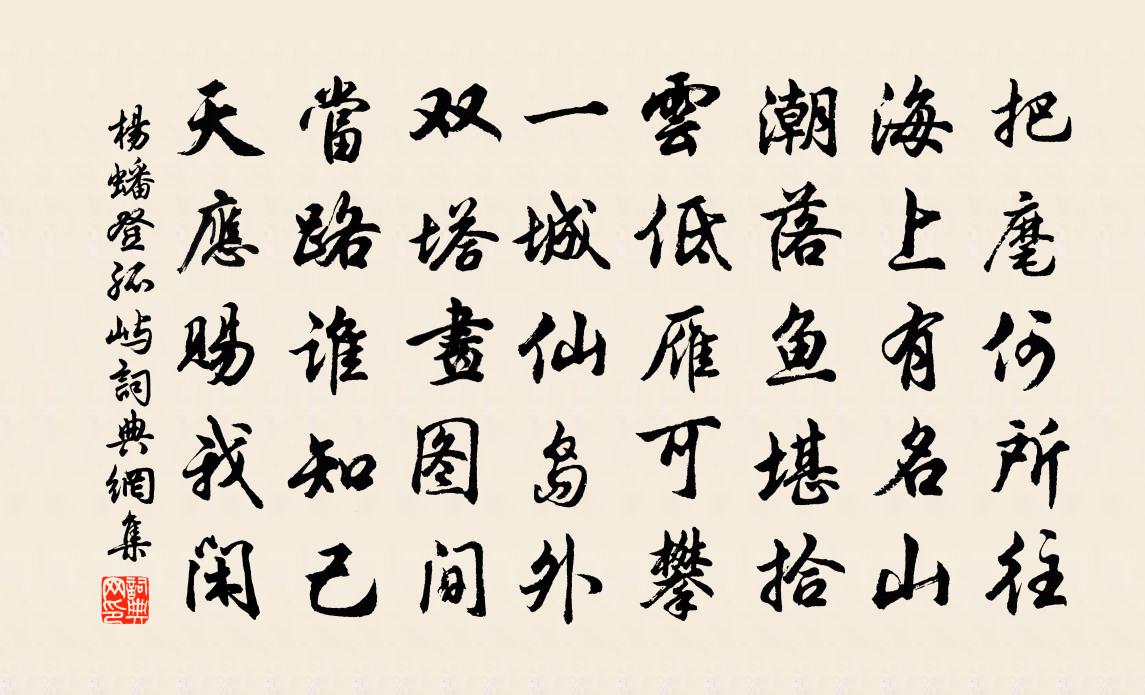 把麾何所往
海上有名山
潮落鱼堪拾
雲低雁可攀
一城仙岛外
双塔畫图间
當路谁知己
天應賜我闲
楊蟠登孤屿詞典網集
詞典网印